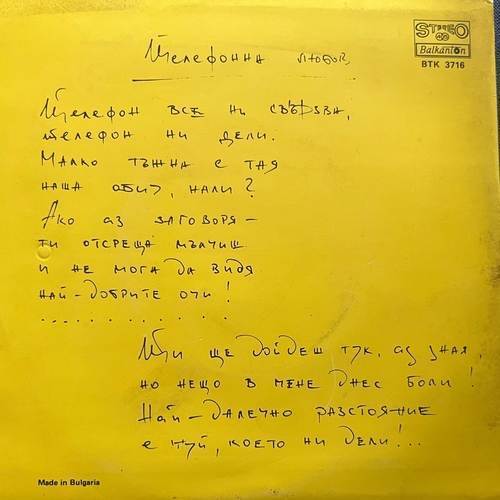 STEREO
Balkanton
ВТК 3716
Телефонна любов
Телефон все ни свързва,
телефон ни дели.
Малко тъжна е тая
наша обич, нали?
Ако аз заговоря –
ти отсреща мълчиш
и не мога да видя
най-добрите очи!
. . . . . . . . . . . .
Ти ще дойдеш тук, аз зная,
но нещо в мене днес боли!
Най-далечно разстояние
е туй, което ни дели!...
Made in Bulgaria